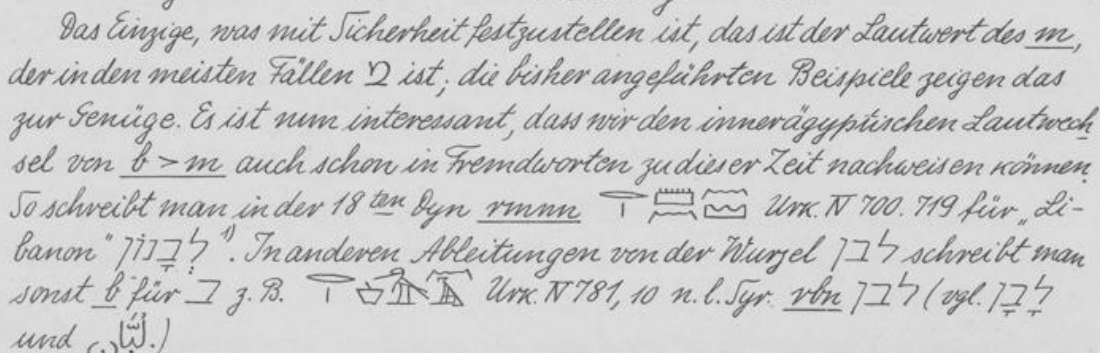 Das Einzige, was mit Sicherheit festzustellen ist, das ist der Lautwert des m,
der in den meisten Fällen מ ist; die bisher angeführten Beispiele zeigen das
zur Genüge. Es ist nun interessant, dass wir den innerägyptischen Lautwech
sel von b > m auch schon in Fremdworten zu dieser Zeit nachweisen können.
So schreibt man in der 18ten Dyn rmnn Urk. IV 700. 719 für „Li-
banon" לְבָנוֹן 1). In anderen Ableitungen von der Wurzel לבן schreibt man
sonst b für ב z. B. Urk. IV 781, 10 n. l. Syr. rbn לבן (vgl. לָבָן
und .)